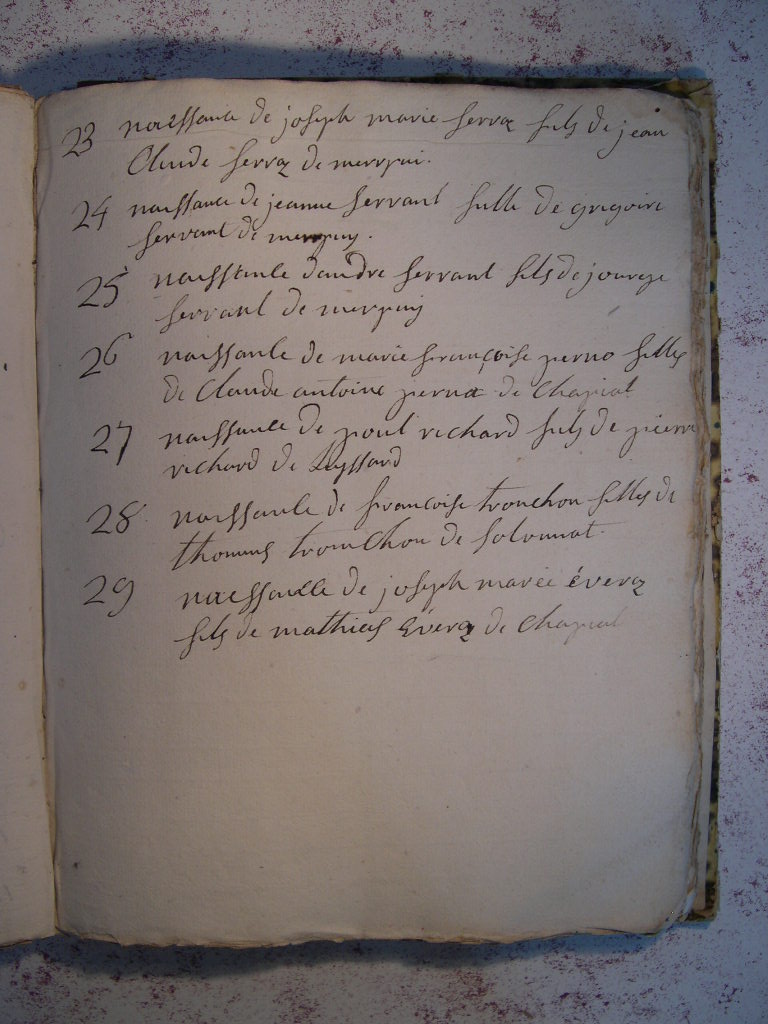 23 naissance de joseph marie serraz fils de jean
Claude serraz de merpui.
24 naissance de jeanne servant fille de gregoire
servant de merpuy.
25 naissance dandre servant fils de
servant de merpuy
26 naissance de marie françoise perno filles
de Claude antoine perna de Chapiat
27 naissance de poul richard fils de pierre
richard de Leyssard
28 naissance de francoise tronchon filles de
thomas tronchon de solonnat.
29 naissance de joseph marie éveraz
fils de mathieu Éveraz de Chapiat